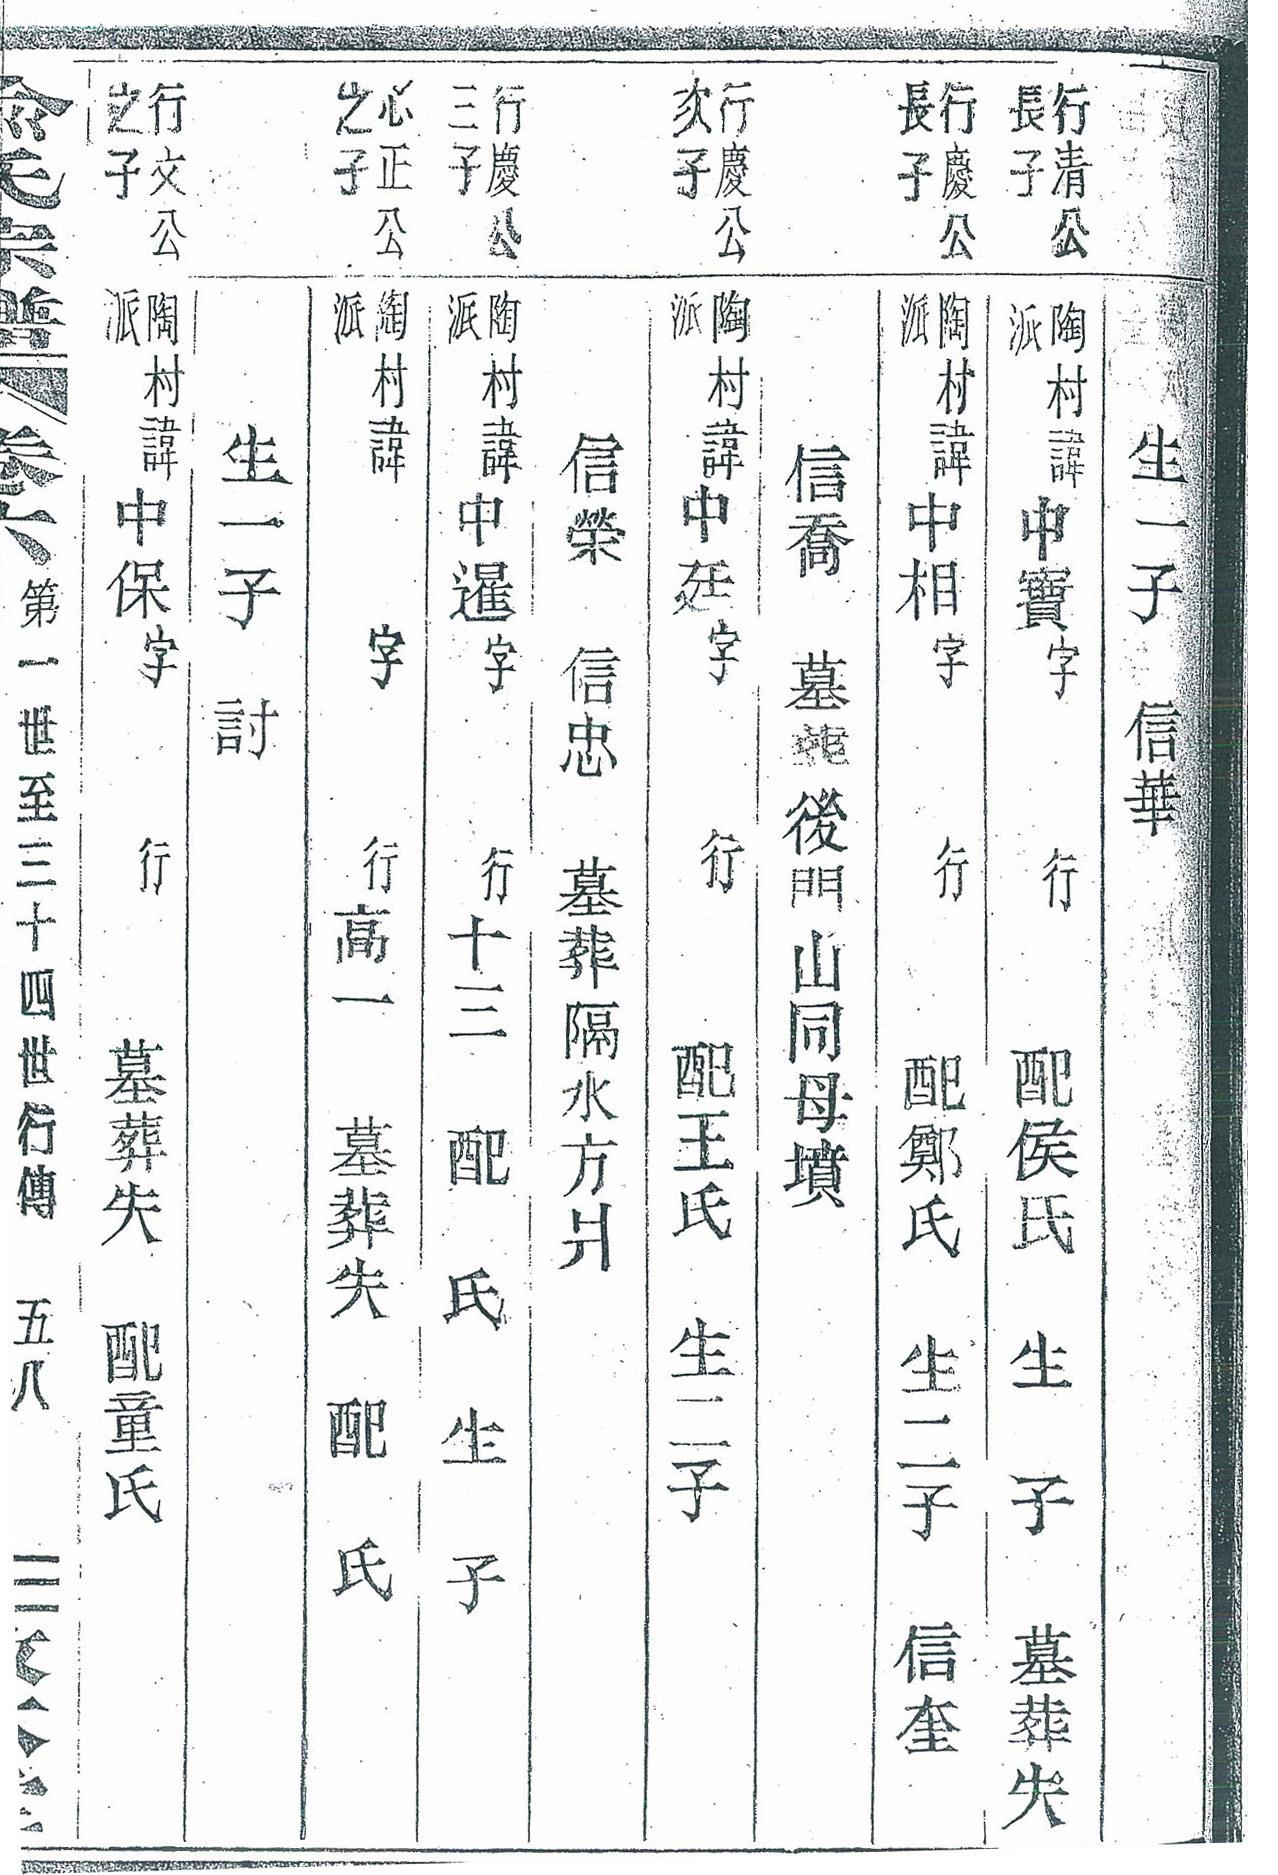 生一子 信華
行清公
長子
陶村
派
諱中寶字 行 配侯氏 生 子 墓葬失
行慶公
長子
陶村
派
諱中相字 行 配鄭氏 生二子 信奎
信喬 墓葬後門山同母墳
行慶公
次子
陶村
派
諱中廷字 行 配王氏 生二子
信榮 信忠 墓葬隔水方爿
行慶公
三子
陶村
派
諱中暹字 行十三 配 氏 生 子
心正公
之子
陶村
派
諱 字 行高一 墓葬失 配 氏
生一子 討
行文公
之子
陶村
派
諱中保字 行 墓葬失 配童氏
俞氏宗譜 卷六 第一世至三十四世行傳 五八